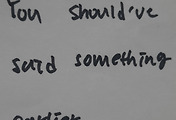 You should've
said something